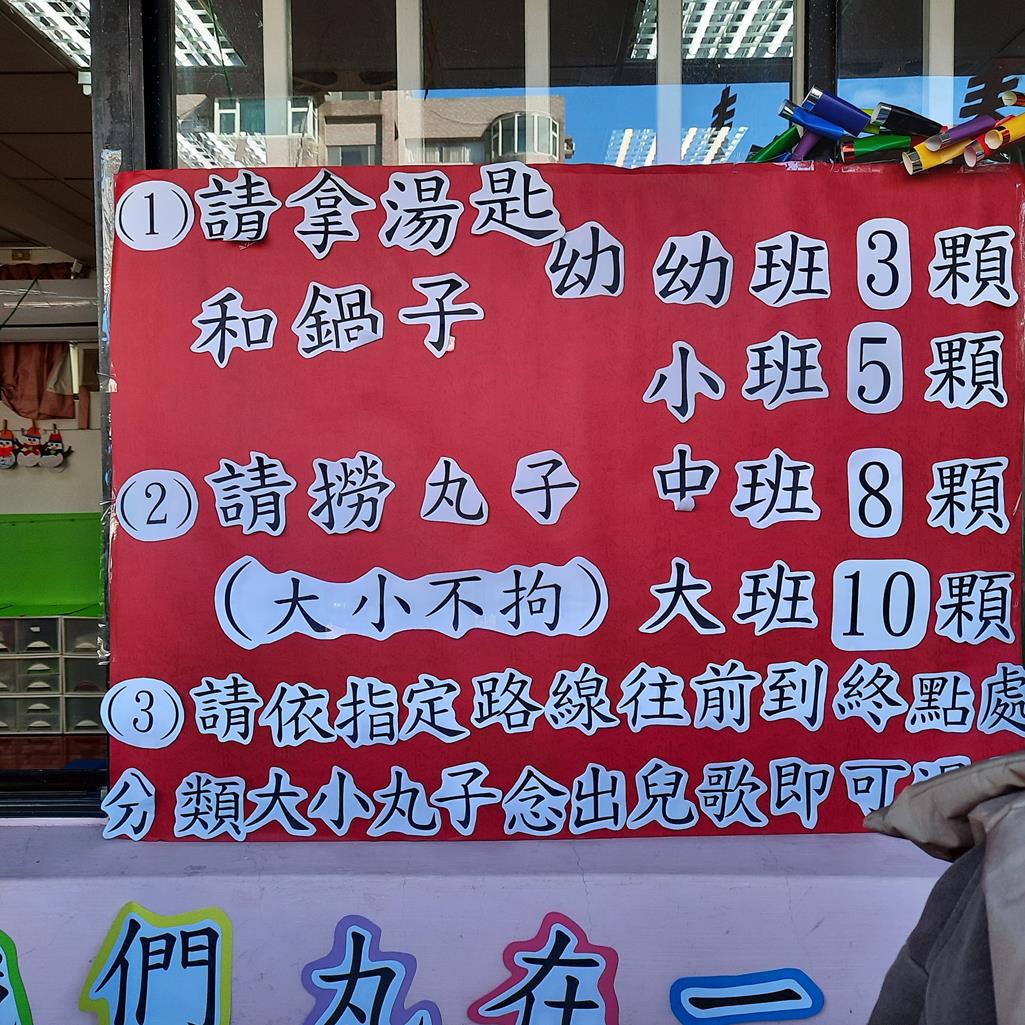 (1)請拿湯匙
和鍋子
幼幼班3顆
小班5顆
(2)請撈丸子 中班8顆
(大小不拘) 大班10顆
(3)請依指定路線往前到終點處
分類大小丸子念出兒歌即可
們丸在一